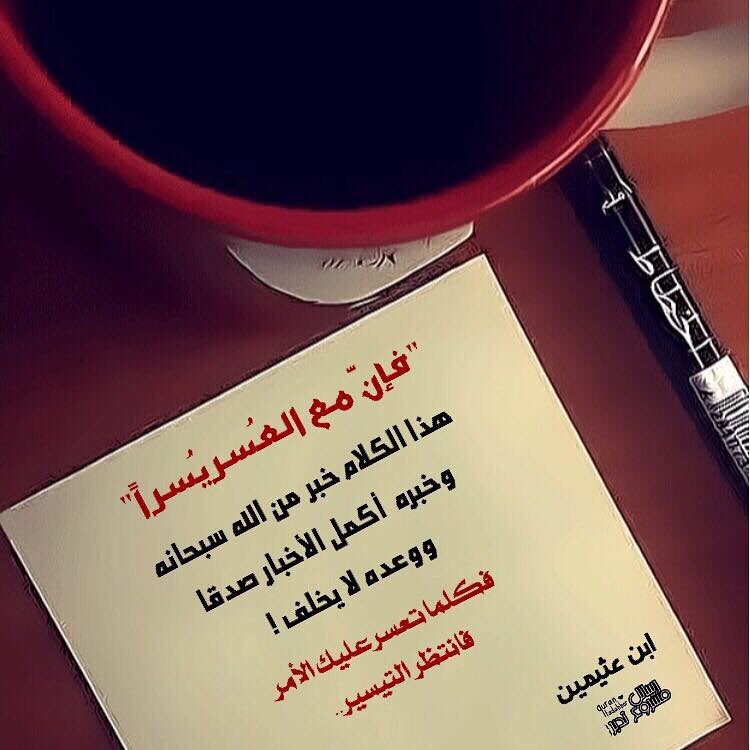 "فإنّ مع العُسر يُسراً"
هذا الكلام خبر من الله سبحانه
وخبره أكمل الأخبار صدقا
ووعده لا يخلف !
فكلما تعسر عليك الأمر
فانتظر التيسير..
ابن عثيمين
Quran